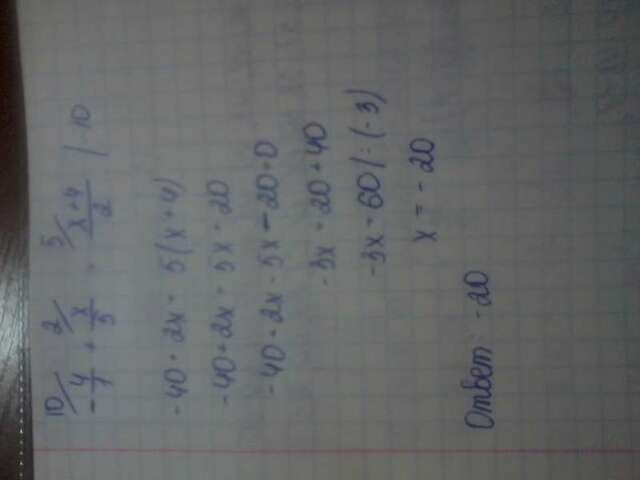 10/ -4/1 + 2/ x/5 = 5/ x+4/2 | · 10
-40 + 2x = 5(x+4)
-40 + 2x = 5x + 20
-40 + 2x - 5x - 20 = 0
-3x = 20 + 40
-3x = 60 | : (-3)
x = -20
Ответ: -20